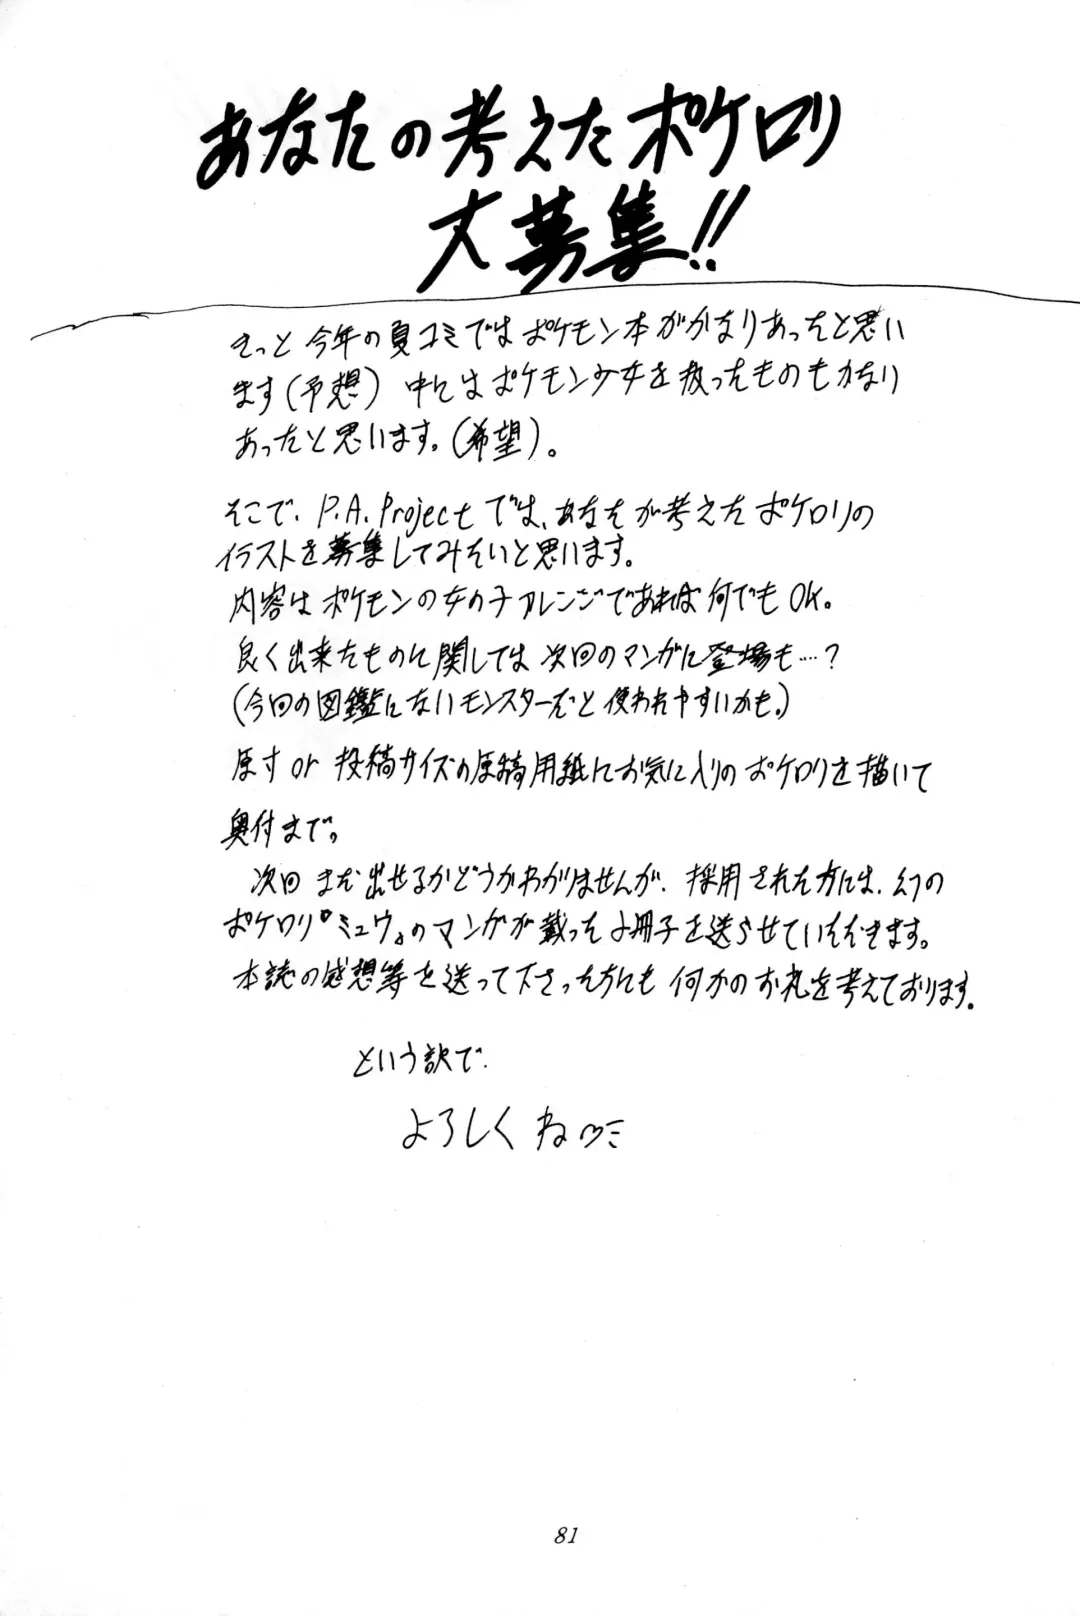 あなたの考えたポケロリ
大募集!!
きっと今年の夏コミではポケモン本がかなりあったと思い
ます(予想) 中にはポケモン少女を扱ったものもかなり
あったと思います。(希望)。
そこで、P.A.Projectでは、あなたが考えたポケロリの
イラストを募集してみたいと思います。
内容はポケモンの女の子アレンジであれば何でもOK。
良く出来たものに関しては次回のマンガに登場も…?
(今回の図鑑にないモンスターだと使われやすいかも。)
原寸or投稿サイズの原稿用紙にお気に入りのポケロリを描いて
奥付まで。
次回まだ出せるかどうかわかりませんが、採用された方には、幻の
ポケロリ『ミュウ』のマンガが載った小冊子を送らせていただきます。
本誌の感想等を送って下さった方にも何かのお礼を考えております。
という訳で、
よろしくね
81